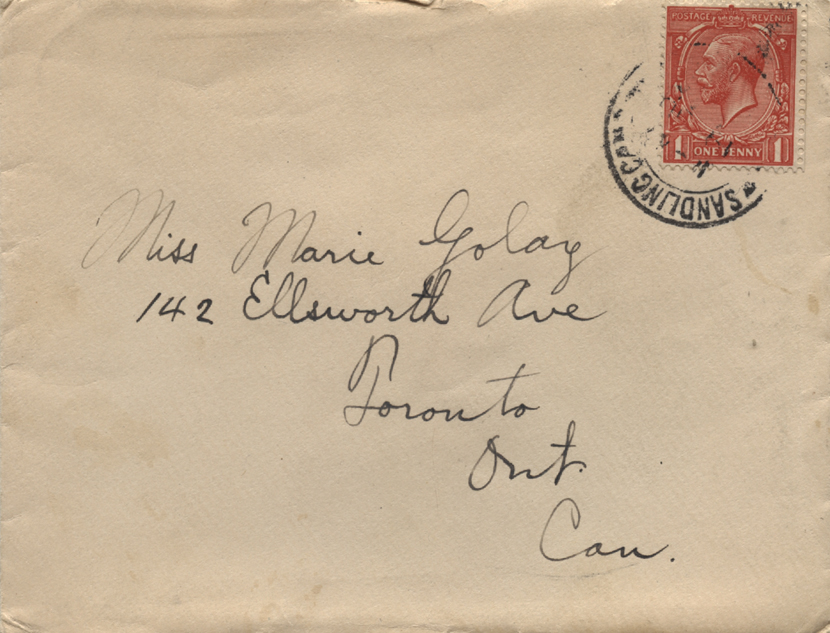 POSTAGE REVENUE
1 ONE PENNY 1
SANDLING CA
Miss Marie Golay
142 Ellsworth Ave
Toronto
Ont.
Can.